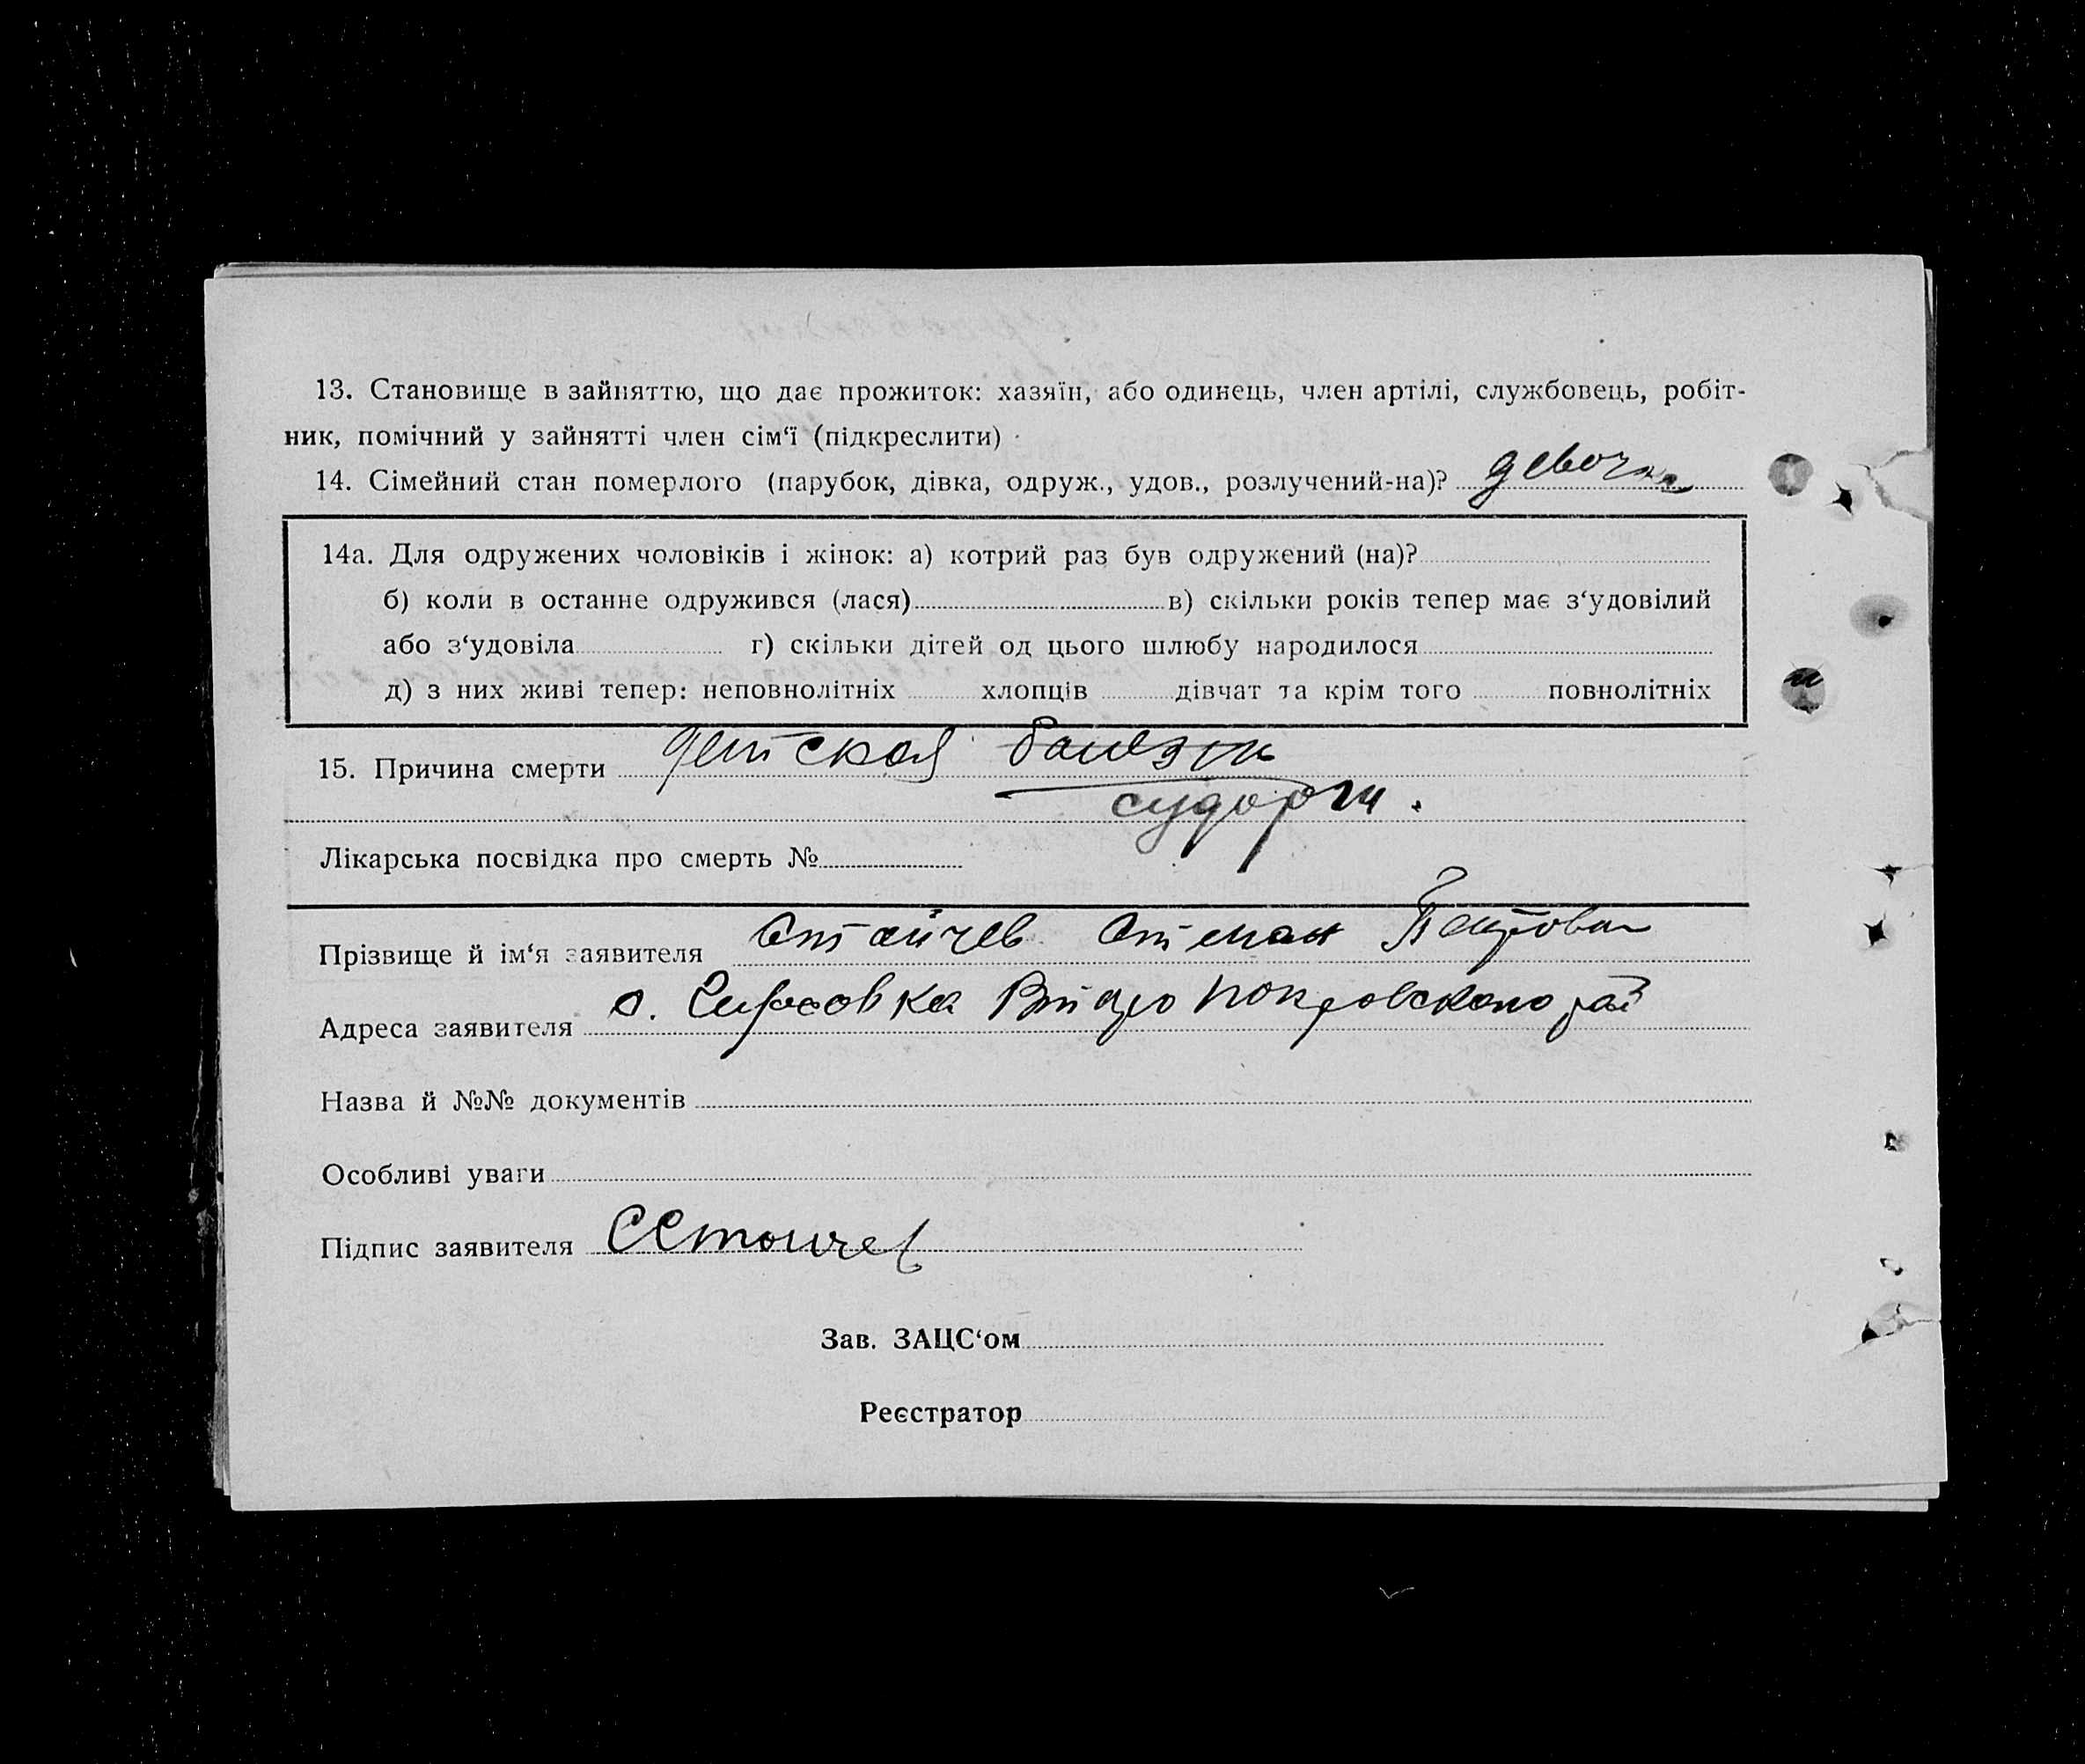 13. Становище в зайняттю, що дає прожиток: хазяїн, або одинець, член артілі, службовець, робіт-
ник, помічний у зайнятті член сім‘ї (підкреслити)
14. Сімейний стан померлого (парубок, дівка, одруж., удов., розлучений-на)? девочка
14а. Для одружених чоловіків і жінок: а) котрий раз був одружений (на)?
б) коли в останне одружився (лася) в) скільки років тепер має з‘удовілий
або з‘удовіла г) скільки дітей од цього шлюбу народилося
д) з них живі тепер: неповнолітніх хлопців дівчат та крім того повнолітніх
15. Причина смерти детская болезнь
судороги.
Лікарська посвідка про смерть №
Прізвище й ім‘я заявителя Стойчев Степан Петрович
Адреса заявителя с. Гирсовка покровского рай
Назва й №№ документів
Особливі уваги
Підпис заявителя ССтойчев
Зав. ЗАЦС‘ом
Реєстратор